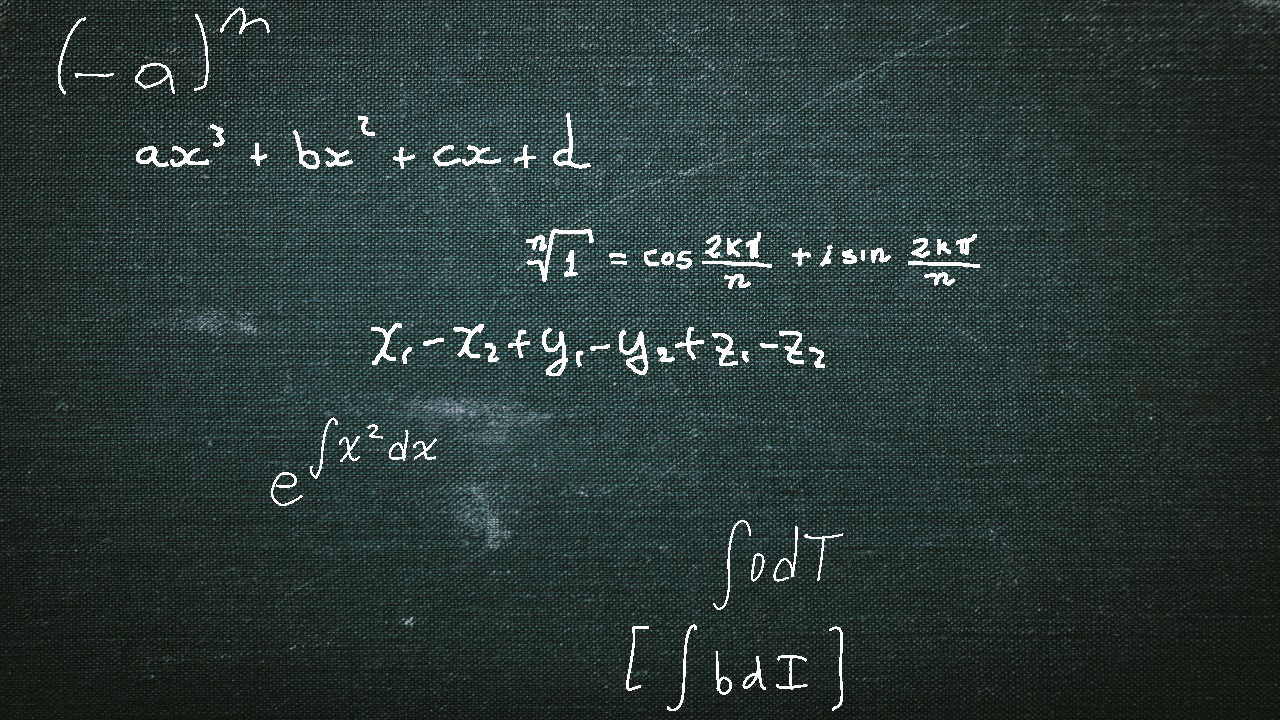 (-a)ⁿ
ax³ + bx² + cx + d
ⁿ√1 = cos 2kπ/n + i sin 2kπ/n
x₁ - x₂ + y₁ - y₂ + z₁ - z₂
e^∫x²dx
∫0dT
[∫bdI]